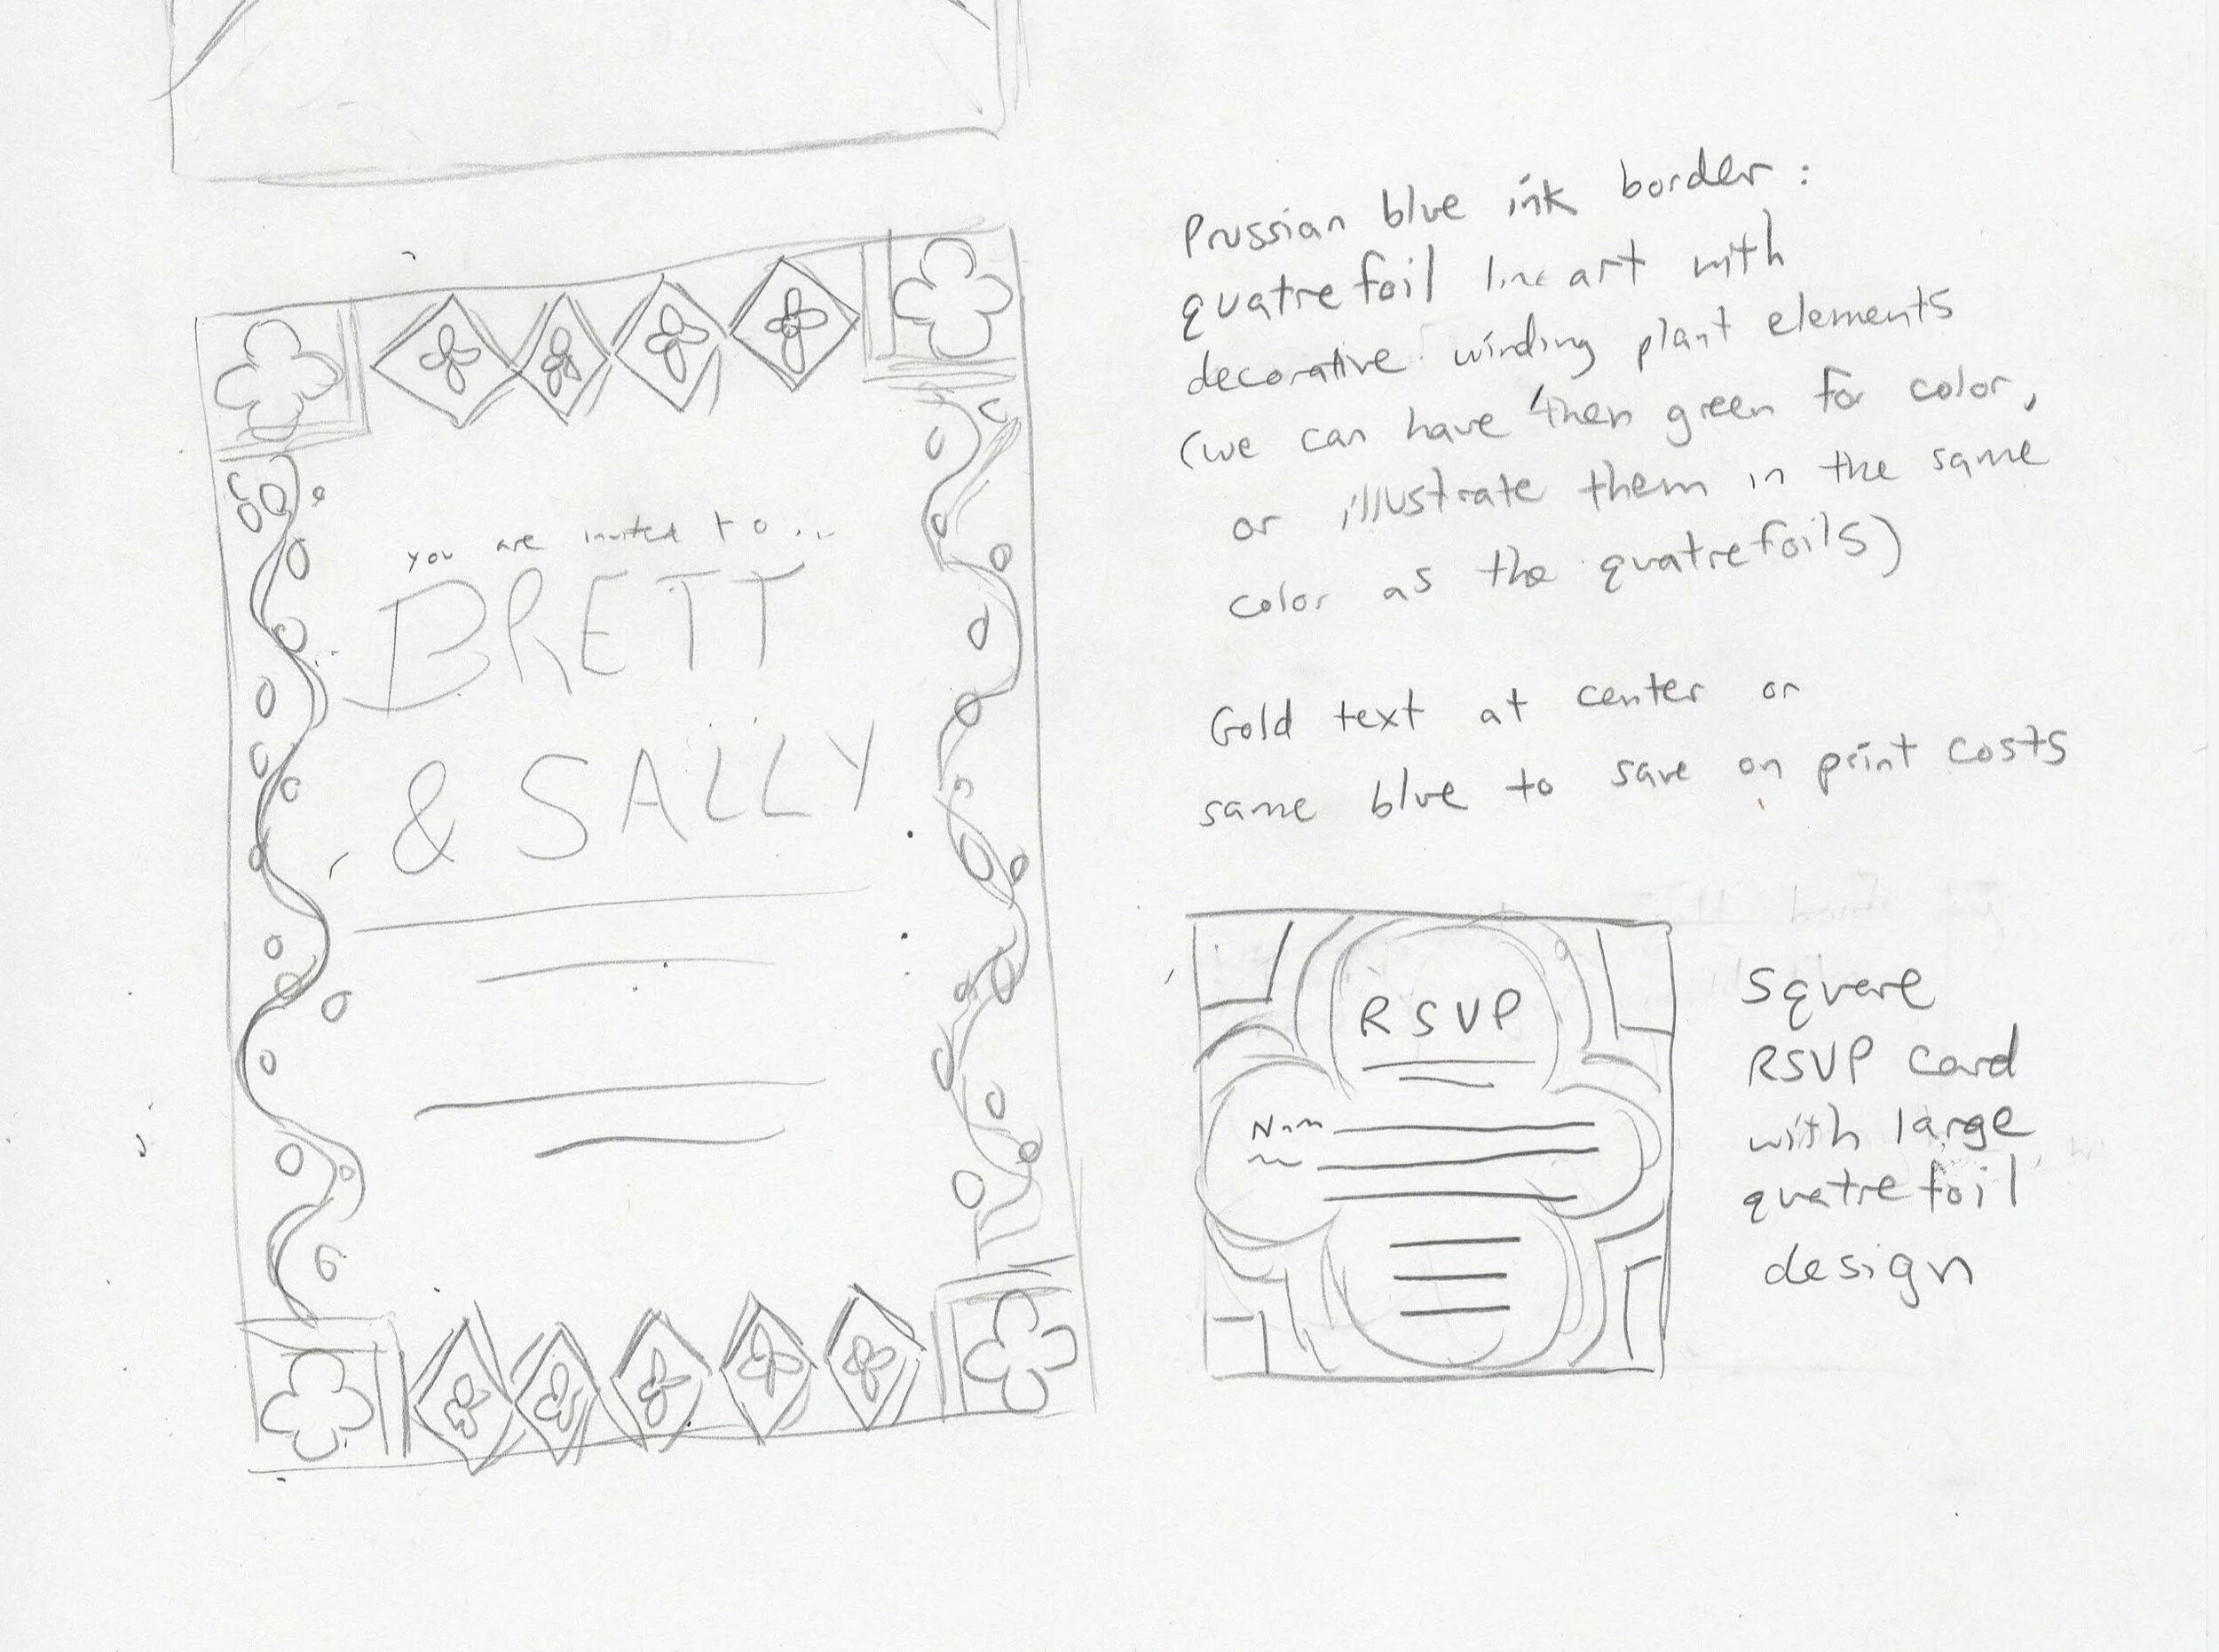 you are invited to...
BRETT
& SALLY
Prussian blue ink border:
quatrefoil line art with
decorative winding plant elements
(we can have then green for color,
or illustrate them in the same
color as the quatrefoils)
Gold text at center or
same blue to save on print costs
RSVP
Square
RSVP card
with large
quatrefoil
design